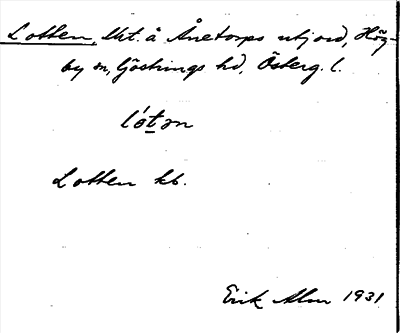 Lotten, Utt. å Ånetorps utjord, Hög-
by sn, Göstrings hd, Österg. l.
lótən
Lotten kb.
Erik Alm 1931